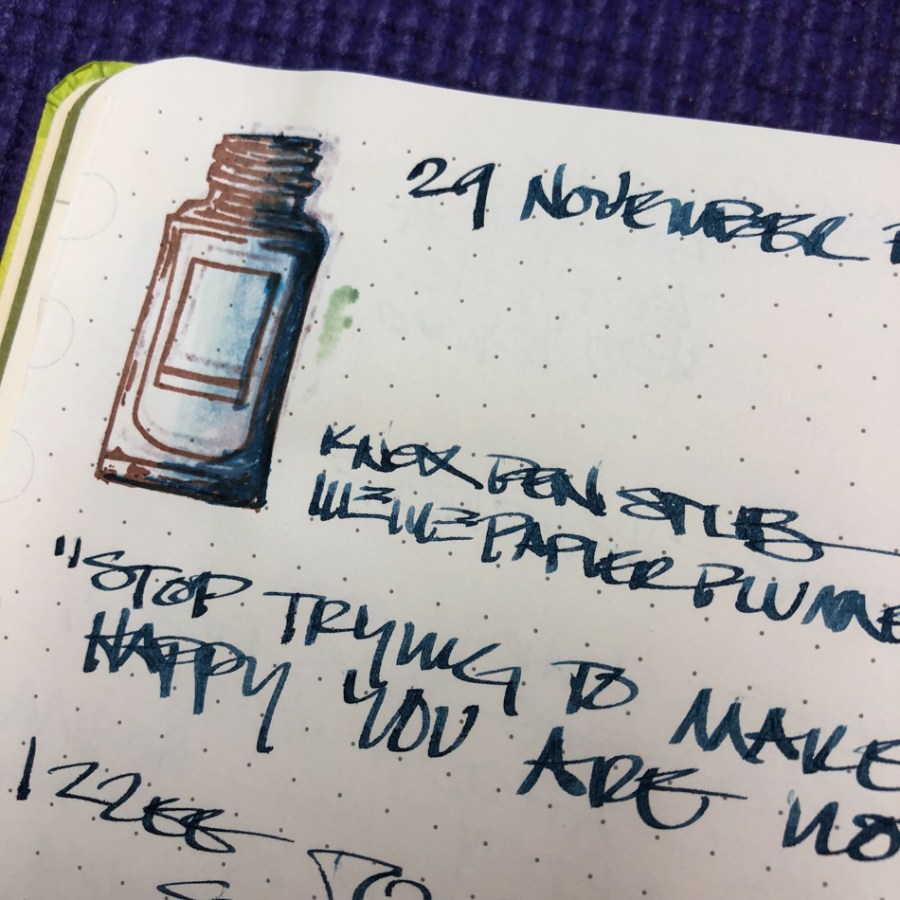 29 NOVEMBER
KNOX PEN STUB
PAPIER PLUME
"STOP TRYING TO MAKE
HAPPY YOU ARE NO